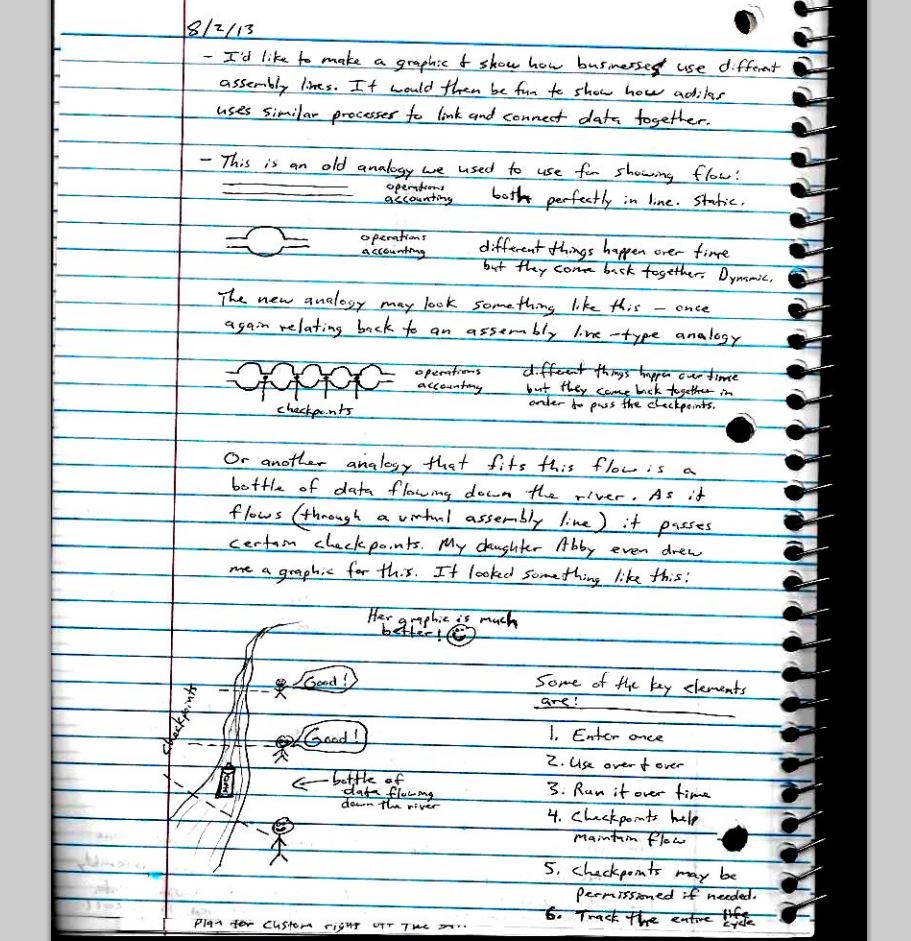 8/2/13
- I'd like to make a graphic & show how businesses use different
assembly lines. It would then be fun to show how adilas
uses similar processes to link and connect data together.
- This is an old analogy we used to use for showing flow:
operations
accounting
both perfectly in line. Static.
operations
accounting
different things happen over time
but they come back together. Dynamic.
The new analogy may look something like this - once
again relating back to an assembly line-type analogy
operations
accounting
different things happen over time
but they come back together in
order to pass the checkpoints.
checkpoints
Or another analogy that fits this flow is a
bottle of data flowing down the river. As it
flows (through a virtual assembly line) it passes
certain checkpoints. My daughter Abby even drew
me a graphic for this. It looked something like this:
Her graphic is much
better!
checkpoints
Good!
Good!
bottle of
data flowing
down the river
Some of the key elements
are:
1. Enter once
2. Use over & over
3. Run it over time
4. Checkpoints help
maintain flow
5. Checkpoints may be
permissioned if needed.
6. Track the entire life
cycle
Plan for custom right off the